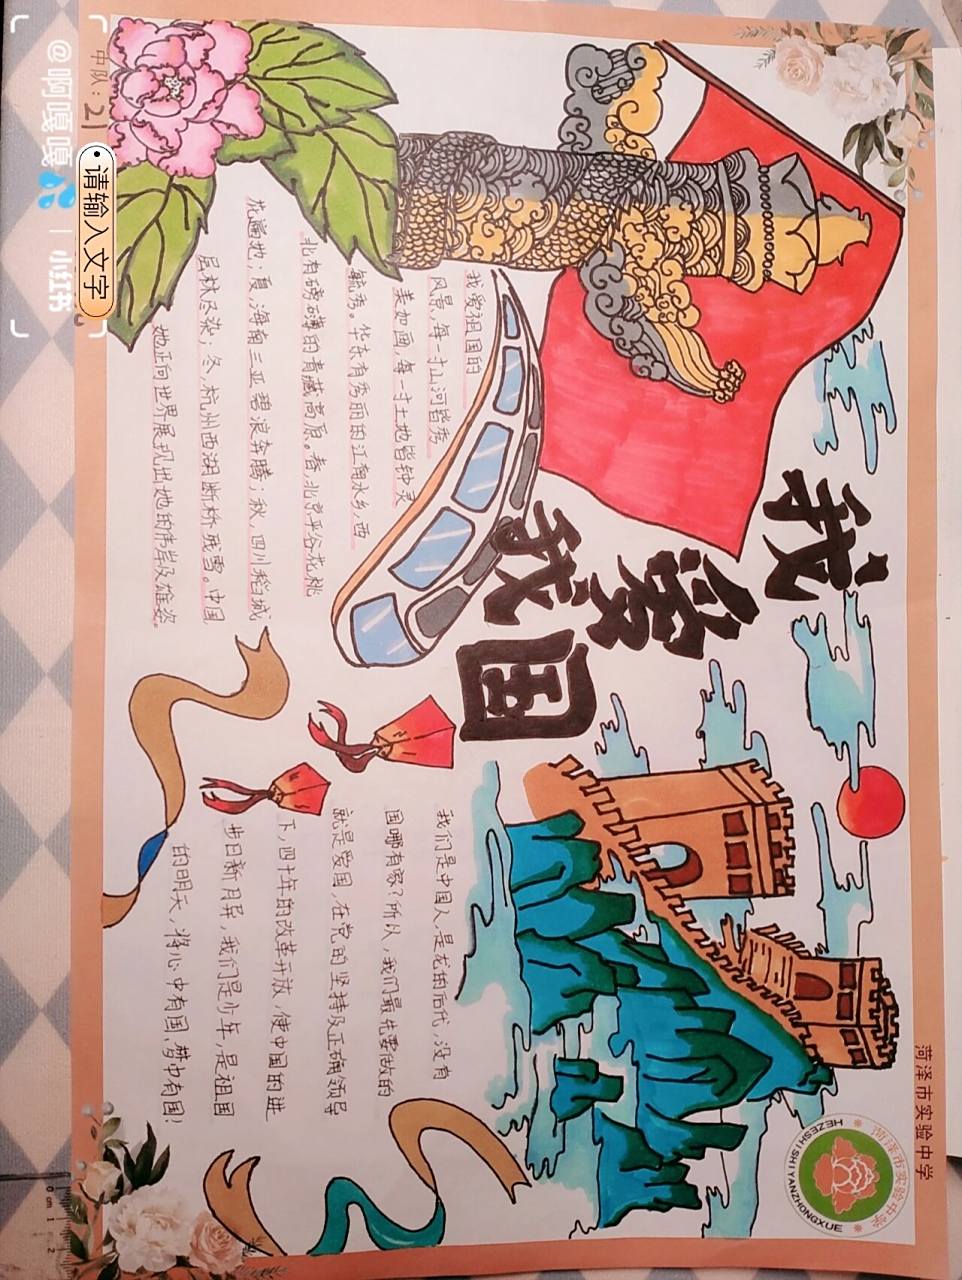 菏泽市实验中学
菏泽市实验中学
HEZESHISHIYANZHONGXUE
我爱我国
我爱祖国的
风景,每一寸山河皆秀
美如画,每一寸土地皆钟灵
毓秀。华东有秀丽的江南水乡,西
北有磅礴的青藏高原。春,北京平谷花桃
先遍地;夏,海南三亚碧浪奔腾;秋,四川稻城
层林尽染;冬,杭州西湖断桥残雪。中国
她正向世界展现出她的伟岸及雄姿。
我们是中国人,是龙的后代,没有
国哪有家?所以,我们最先要做的
就是爱国,在党的坚持及正确领导
下,四十年的改革开放,使中国的进
步日新月异,我们是少年,是祖国
的明天,将心中有国,梦中有国!
中队:21
请输入文字
@啊嘎嘎💦 | 小红书
0 cm 1 2